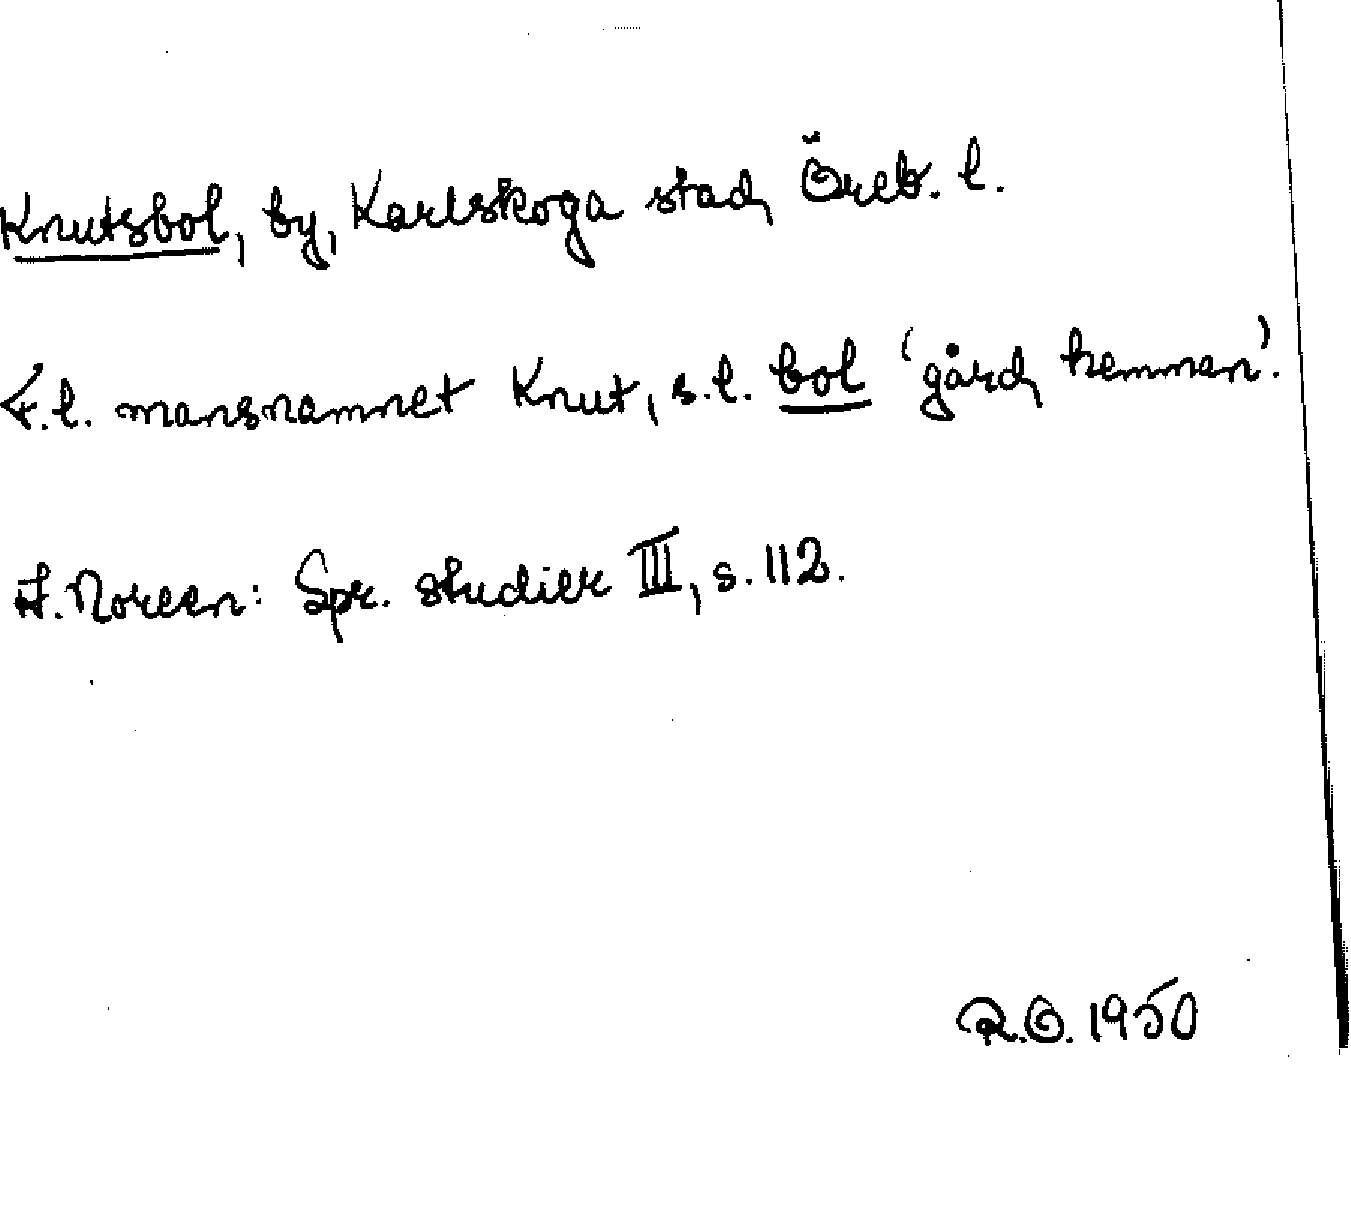 Knutsbol, by, Karlskoga stad, Öreb. l.
F.l. mansnamnet Knut, s.l. bol 'gård, hemman'.
A. Noreen: Spr. studier III, s. 112.
R.O. 1950